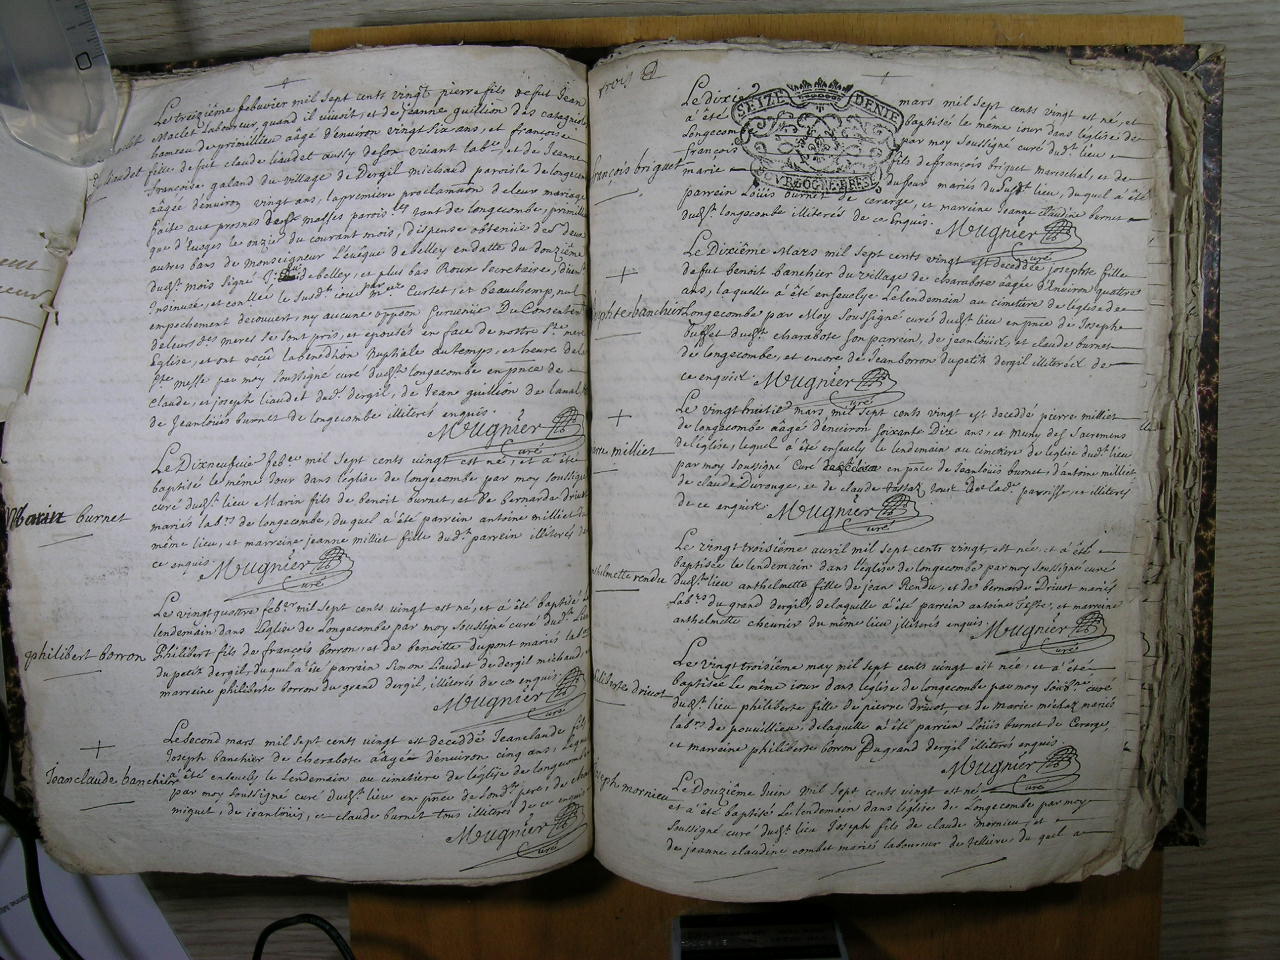 Le treizième febuvier mil sept cents vingt pierre fils de fut Jean
Maclet Laboureur, quand il vivoit, et de jeanne guillion des catagniol
hameau de primillieu aâgé denuiron vingt six ans, et françoise
Liaudet fille de fut claude liaudet aussy de son viuant labr, et de Jeanne
françoise galand du village de Dergil michaud paroisse de longecombe
aâgée denuiron vingt ans, la premiere proclamaôn de leur mariage
faite aux prosnes des messes parois les tant de longecombe, primillieu
que d'euoges le onzie du courant mois, dispense obtenüe des deux
autres bans de monseigneur L'evêque de belley en datte du douzième
dudit mois signé de belley, et plus bas Roux Secretaire, düem.t
insinuée, et conllee le susdt iour par mrs Curtet, et beauchamp, nul
empechement decouvert, ny aucune opposon suruenüe Du Consentemt
de leurs dts meres se sont pris, et epousés en face de nostre Ste mere
Eglise, et ont reçû la benediction Nuptiale au temps, et heure de la
Ste messe par moy soussigné curé dudit longecombe en pnce de
claude, et joseph liaudet dud. dergil, de Jean guillion de
de Jeanloüis burnet de longecombe illiterés enquis.
Mugnier
curé
Marin burnet
Le Dixneufvie feber mil sept cents vingt est né, et a été
baptisé le même jour dans leglise de longecombe par moy soussigné
curé dudit lieu Marin fils de benoit burnet, et De bernarde Driuot
mariés labrs de longecombe, du quel a été parrein antoine milliet du
même lieu, et marreine jeanne milliet fille dudt parrein illiterés de
ce enquis. Mugnier
curé
philibert borron
Le vingt quatre feber mil sept cents vingt est né, et a été baptisé le
lendemain dans L'eglise de Longecombe par moy soussigné curé dudit Lieu
Philibert fils de françois borron, et de benoitte dupont mariés labrs
du petit dergil, duquel a été parrein Simon Liaudet de dergil michaud,
marreine philiberte borron du grand dergil, illiterés de ce enquis
Mugnier
curé
Jeanclaude banchier
Le second mars mil sept cents vingt est decedé Jeanclaude fils
Joseph banchier de charabote aâgé denuiron cinq ans, lequel
a été enseuely le Lendemain au cimetiere de l'eglise de longecombe
par moy soussigné curé dudit lieu en pnce de sondt pere, de
miguet, de ieanloüis, et claude burnet tous illiterés de ce enquis
Mugnier
curé
trois
SEIZE DENIE
françois briguet
Le dixie mars mil sept cents vingt est né, et
a été baptisé le même iour dans leglise de
Longecom par moy soussigné curé dudt lieu
françois fils de françois briguet mareschal, et de
marie dufour mariés dudit lieu, duquel a été
parrein Loüis burnet de cerarge, et marreine Jeanne claudine bernet
dudit longecombe illiterés de ce enquis. Mugnier
curé
banchier
Le Dixième Mars mil sept cents vingt est decedée josephte fille
de fut benoit banchier du village de charabote aagée d'enuiron quatre
ans, laquelle a été enseuelye Le lendemain au cimetiere de l'eglise de
Longecombe par Moy soussigné curé dudit lieu en pnce de Josephe
buffet dudit charabote son parrein, de jeanloüix, et claude burnet
de longecombe, et encore de Jean borron du petit dergil illiteréx de
ce enquix Mugnier
curé
milliet
Le vingt huitie mars mil sept cents vingt est decedé pierre milliet
de longecombe aâgé denuiron soixante Dix ans, et muny des sacremens
de l'eglise, lequel a été enseuely le lendemain au cimetiere de l'eglise dudt lieu
par moy soussigné Curé en pnce de Jeanloüis burnet, d'antoine milliet
de claude Durouge, et de claude tossaz tous labr parroisse, et illiterés
de ce enquix Mugnier
curé
anthelmette rendu
Le vingt troisième auril mil sept cents vingt est née, et a été
baptisée le lendemain dans l'eglise de longecombe par moy soussigné curé
dudit lieu anthelmette fille de jean Rendu, et de bernarde Driuot mariés
Labrs du grand dergil, de laquelle a été parrein antoine Teste, et marreine
anthelmette cheurier du même lieu illiterés enquis. Mugnier
curé
philiberte driuot
Le vingt troisième may mil sept cents vingt est née, et a été
baptisée le même iour dans l'eglise de longecombe par moy soussigné curé
dudit lieu philiberte fille de pierre driuot, et de marie michaz mariés
labrs de pouillieu, de laquelle a été parrein Loüis burnet de Cerarge,
et marreine philiberte borron Du grand dergil illiterés enquis.
Mugnier
curé
joseph mornieu
Le Douzième Juin mil sept cents vingt est né
et a été baptisé le lendemain dans l'eglise de Longecombe par moy
soussigné curé dudit lieu Joseph fils de claude mornieu, et
de jeanne claudine combet mariés laboureur de du quel a